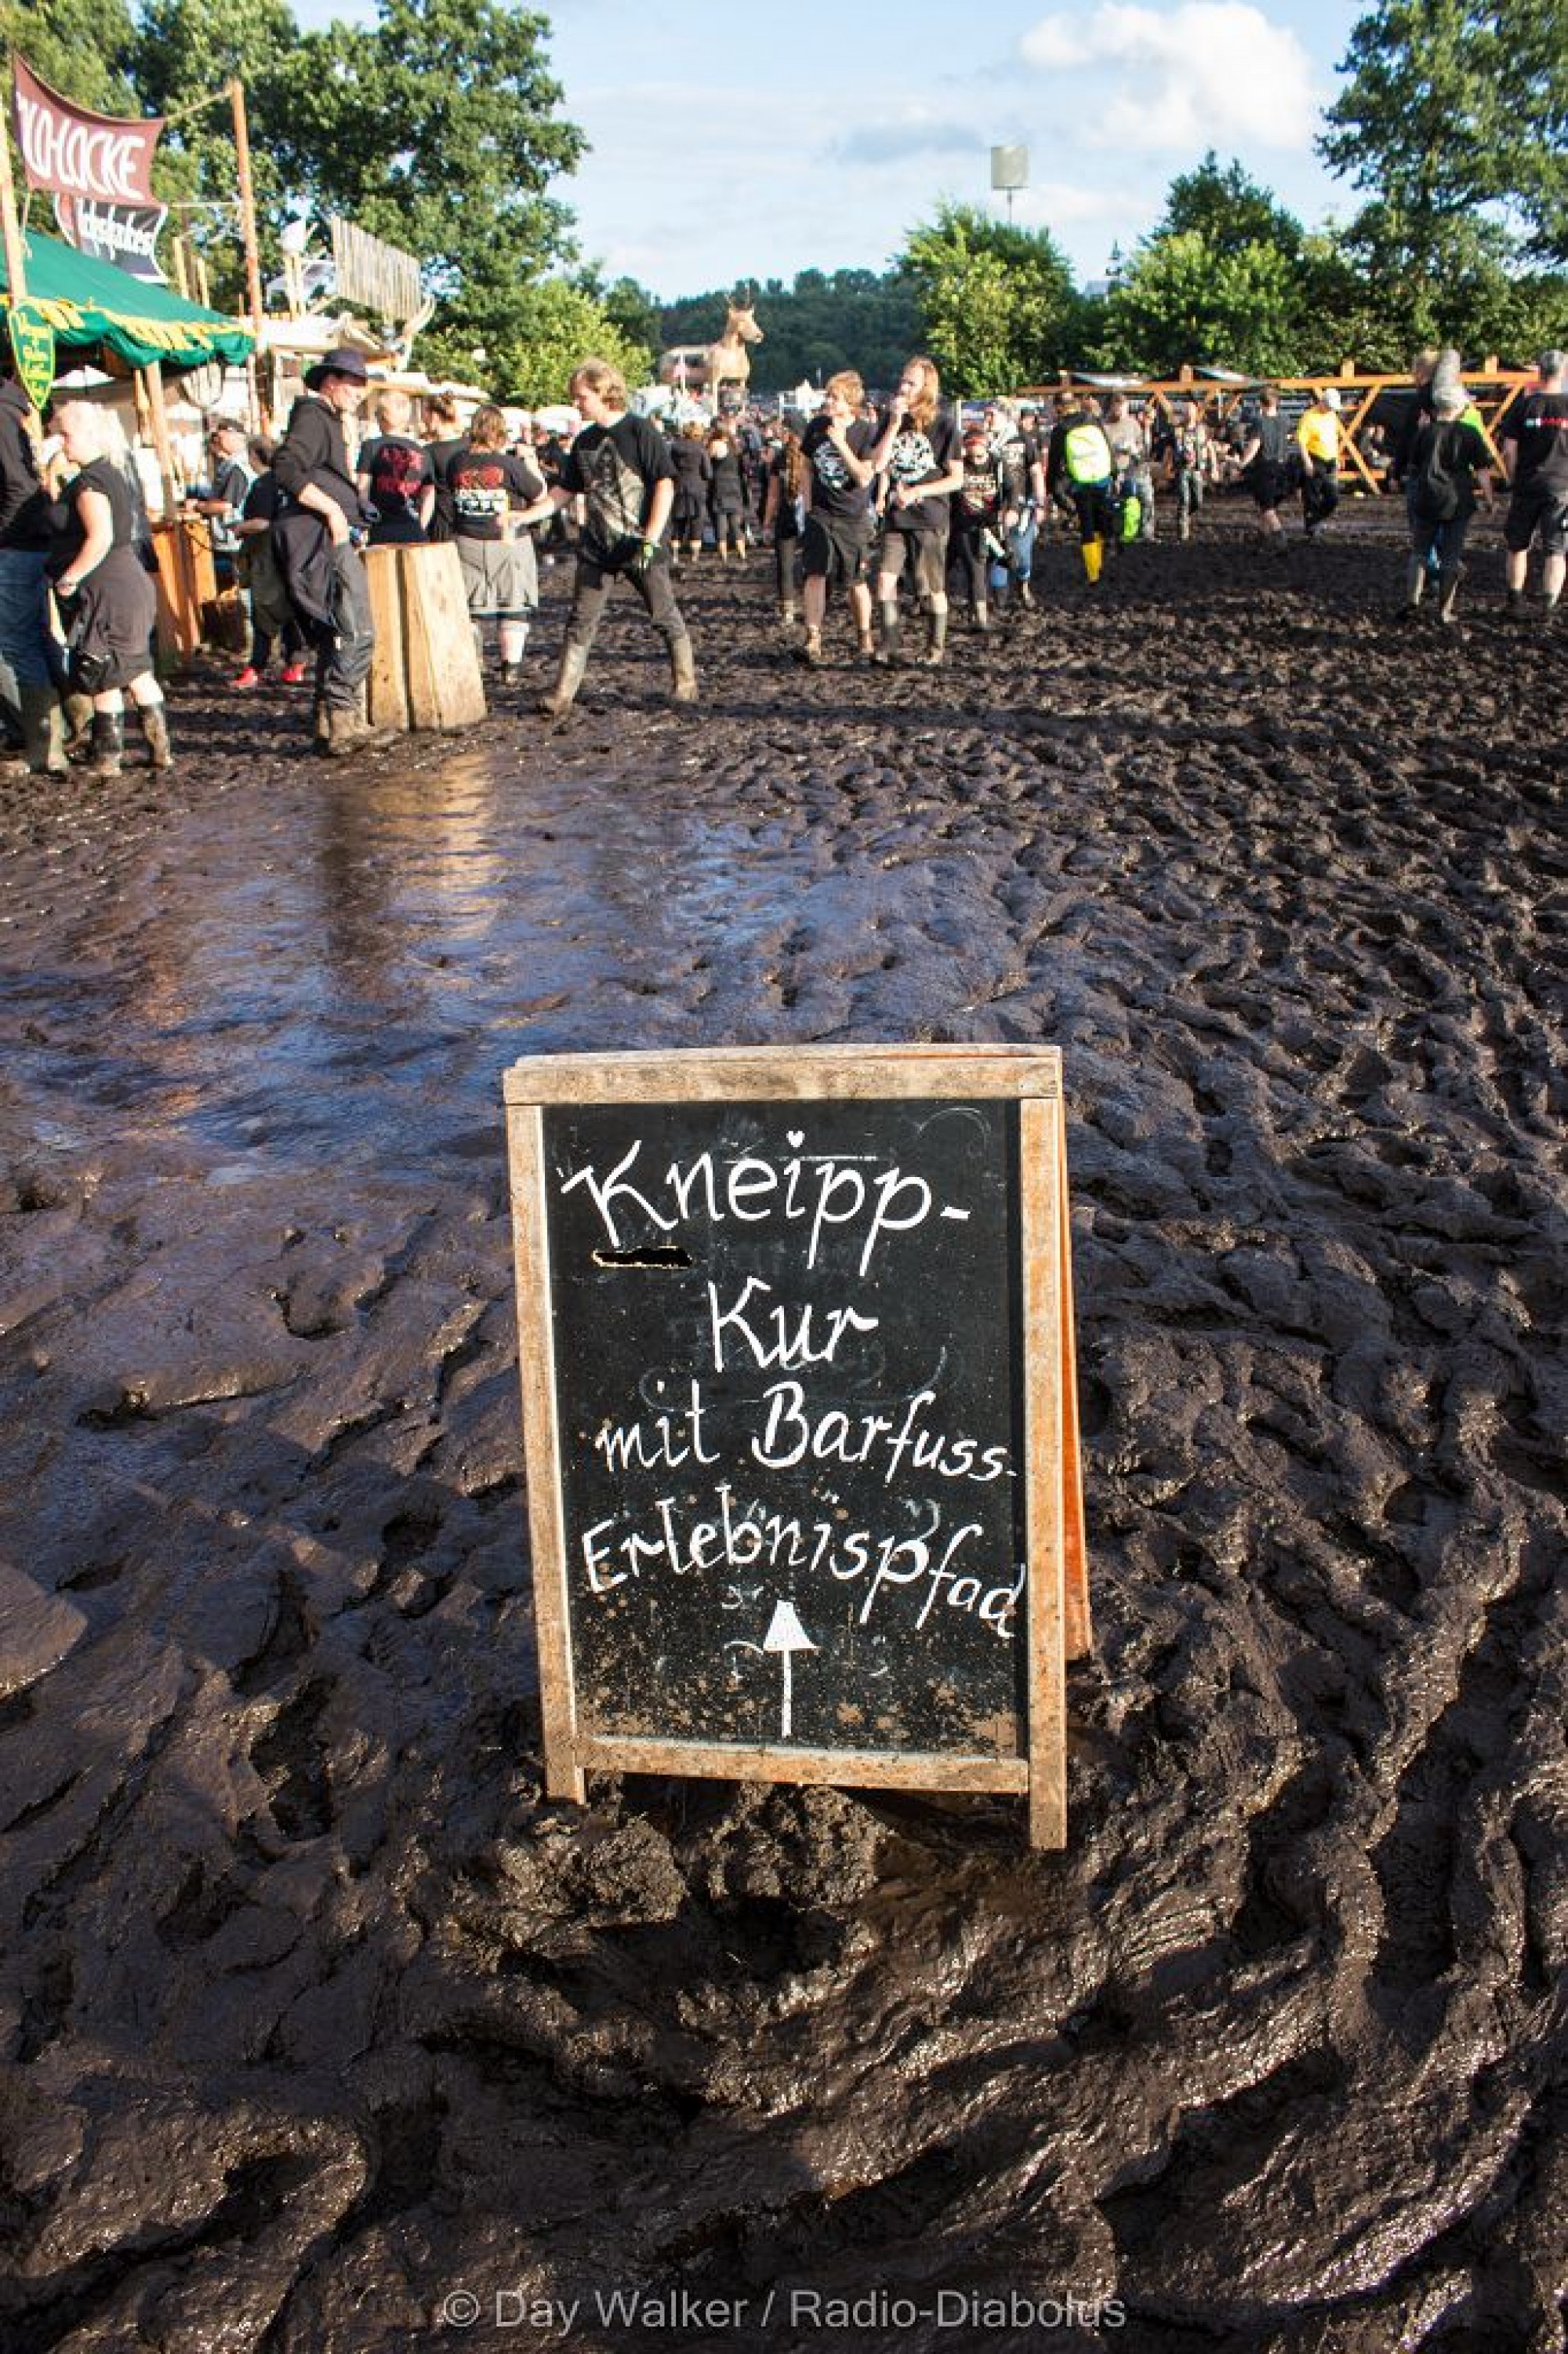 Kneipp-
Kur
mit Barfuss-
Erlebnispfad
© Day Walker / Radio-Diabolus